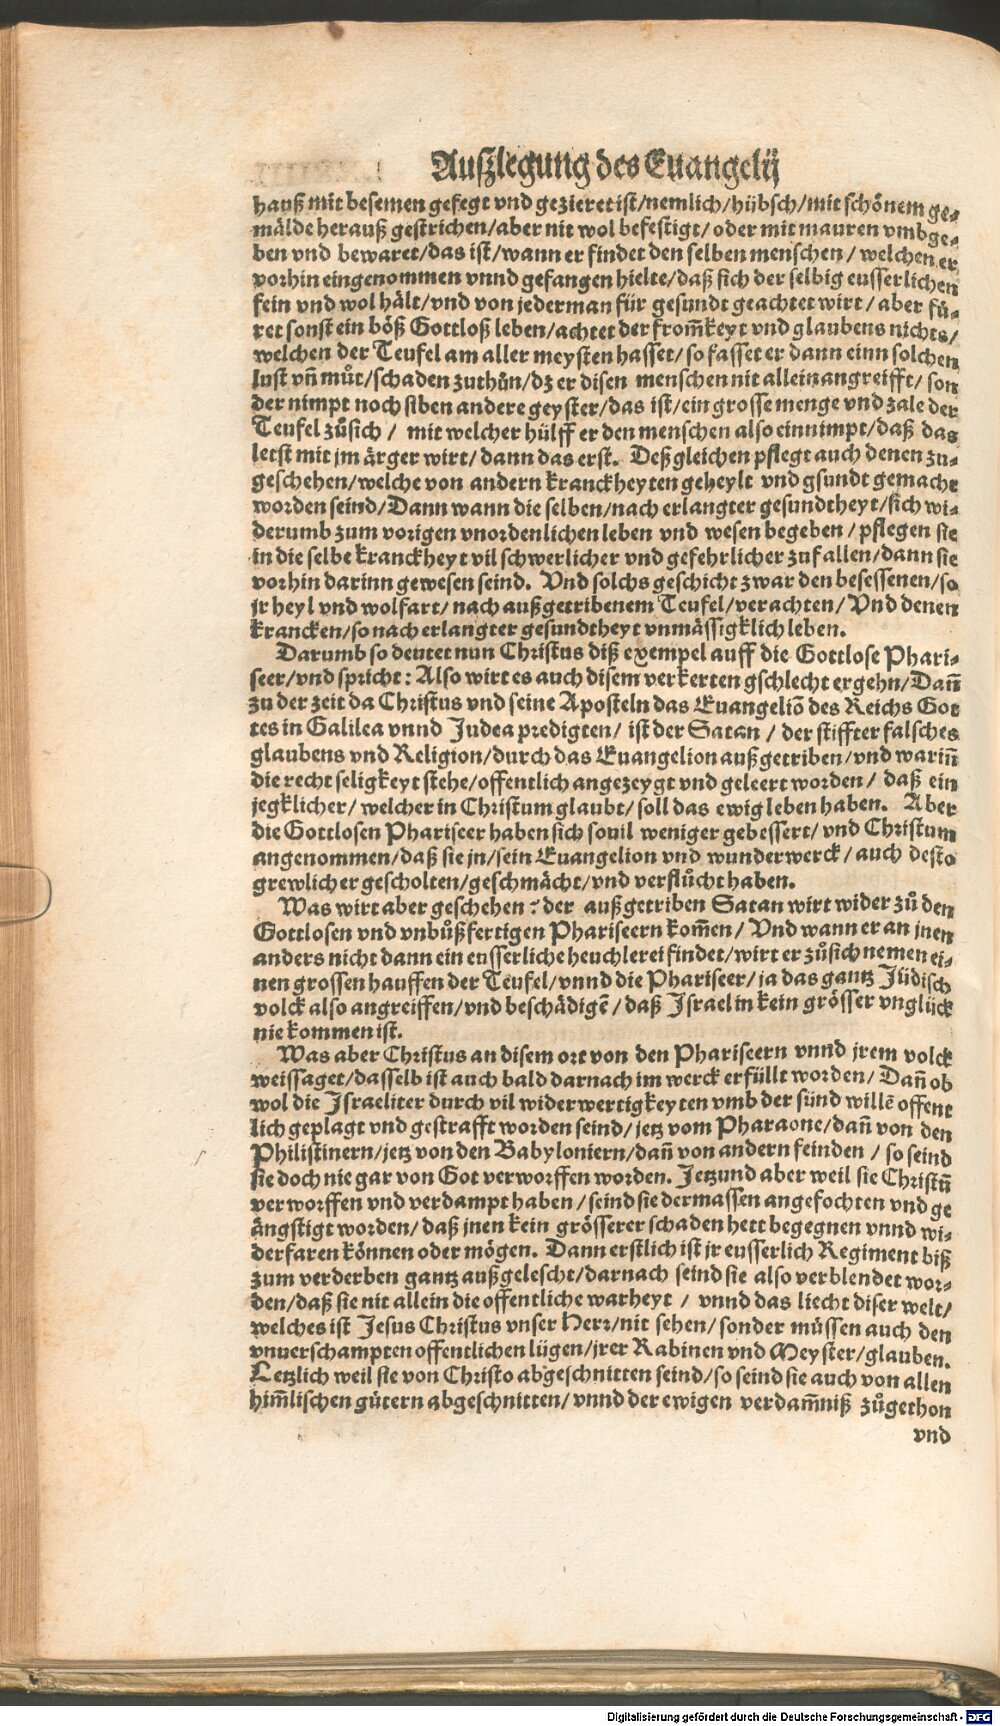 Auſzlegung des Euangelij
hauß mit beſemen gefegt vnd gezieret iſt/nemlich/hübſch/mit ſchönem ge-
mälde herauß geſtrichen/aber nit wol befeſtigt/oder mit mauren vmbge-
ben vnd bewaret/das iſt/wann er findet den ſelben menſchen/welchen er
vorhin eingenommen vnnd gefangen hielte/daß ſich der ſelbig euſſerlichen
fein vnd wol hält/vnd von jederman für geſundt geachtet wirt/aber fü-
ret ſonſt ein böß Gottloß leben/achtet der from̃keyt vnd glaubens nichts/
welchen der Teufel am aller meyſten haſſet/ſo faſſet er dann einn ſolchen
luſt vñ můt/ſchaden zuthůn/dz er diſen menſchen nit allein angreifft/ſon
der nimpt noch ſiben andere geyſter/das iſt/ein groſſe menge vnd zale der
Teufel zůſich/ mit welcher hülff er den menſchen alſo einnimpt/daß das
letſt mit jm ärger wirt/dann das erſt. Deßgleichen pflegt auch denen zu-
geſchehen/welche von andern kranckheyten geheylt vnd gſundt gemacht
worden ſeind/Dann wann die ſelben/nach erlangter geſundtheyt/ſich wi-
derumb zum vorigen vnordenlichen leben vnd weſen begeben/pflegen ſie
in die ſelbe kranckheyt vil ſchwerlicher vnd gefehrlicher zufallen/dann ſie
vorhin darinn geweſen ſeind. Vnd ſolchs geſchicht zwar den beſeſſenen/ſo
jr heyl vnd wolfart/nach außgetribenem Teufel/verachten/Vnd denen
krancken/ſo nach erlangter geſundtheyt vnmäſſigklich leben.
Darumb ſo deutet nun Chriſtus diß exempel auff die Gottloſe Phari-
ſeer/vnd ſpricht: Alſo wirt es auch diſem verkerten gſchlecht ergehn/Dañ
zu der zeit da Chriſtus vnd ſeine Apoſteln das Euangeliõ des Reichs Got
tes in Galilea vnnd Judea predigten/ iſt der Satan/ der ſtiffter falſches
glaubens vnd Religion/durch das Euangelion außgetriben/vnd warin̄
die recht ſeligkeyt ſtehe/offentlich angezeygt vnd geleert worden/ daß ein
jegklicher/welcher in Chriſtum glaubt/ſoll das ewig leben haben. Aber
die Gottloſen Phariſeer haben ſich ſouil weniger gebeſſert/vnd Chriſtum
angenommen/daß ſie jn/ſein Euangelion vnd wunderwerck/auch deſto
grewlicher geſcholten/geſchmächt/vnd verflůcht haben.
Was wirt aber geſchehen? der außgetriben Satan wirt wider zů den
Gottloſen vnd vnbůßfertigen Phariſeern kom̄en/Vnd wann er an jnen
anders nicht dann ein euſſerliche heuchlerei findet/wirt er zůſich nemen ei-
nen groſſen hauffen der Teufel/vnnd die Phariſeer/ja das gantz Jüdiſch
volck alſo angreiffen/vnd beſchädigē/daß Iſrael in kein gröſſer vnglück
nie kommen iſt.
Was aber Chriſtus an diſem ort von den Phariſeern vnnd jrem volck
weiſſaget/daſſelb iſt auch bald darnach im werck erfüllt worden/Dañ ob
wol die Iſraeliter durch vil widerwertigkeyten vmb der ſünd willē offent
lich geplagt vnd geſtrafft worden ſeind/jetz vom Pharaone/dañ von den
Philiſtinern/jetz von den Babyloniern/dañ von andern feinden/ſo ſeind
ſie doch nie gar von Got verworffen worden. Jetzund aber weil ſie Chriſtū
verworffen vnd verdampt haben/ſeind ſie dermaſſen angefochten vnd ge
ängſtigt worden/daß jnen kein gröſſerer ſchaden hett begegnen vnnd wi-
derfaren können oder mögen. Dann erſtlich iſt jr euſſerlich Regiment biß
zum verderben gantz außgeleſcht/darnach ſeind ſie alſo verblendet wor-
den/daß ſie nit allein die offentliche warheyt/ vnnd das liecht diſer welt/
welches iſt Jeſus Chriſtus vnſer Herr/nit ſehen/ſonder müſſen auch den
vnuerſchampten offentlichen lügen/jrer Rabinen vnd Meyſter/glauben.
Letzlich weil ſie von Chriſto abgeſchnitten ſeind/ſo ſeind ſie auch von allen
him̄liſchen gütern abgeſchnitten/vnnd der ewigen verdam̄niß zůgethon
vnd
Digitalisierung gefördert durch die Deutsche Forschungsgemeinschaft - DFG